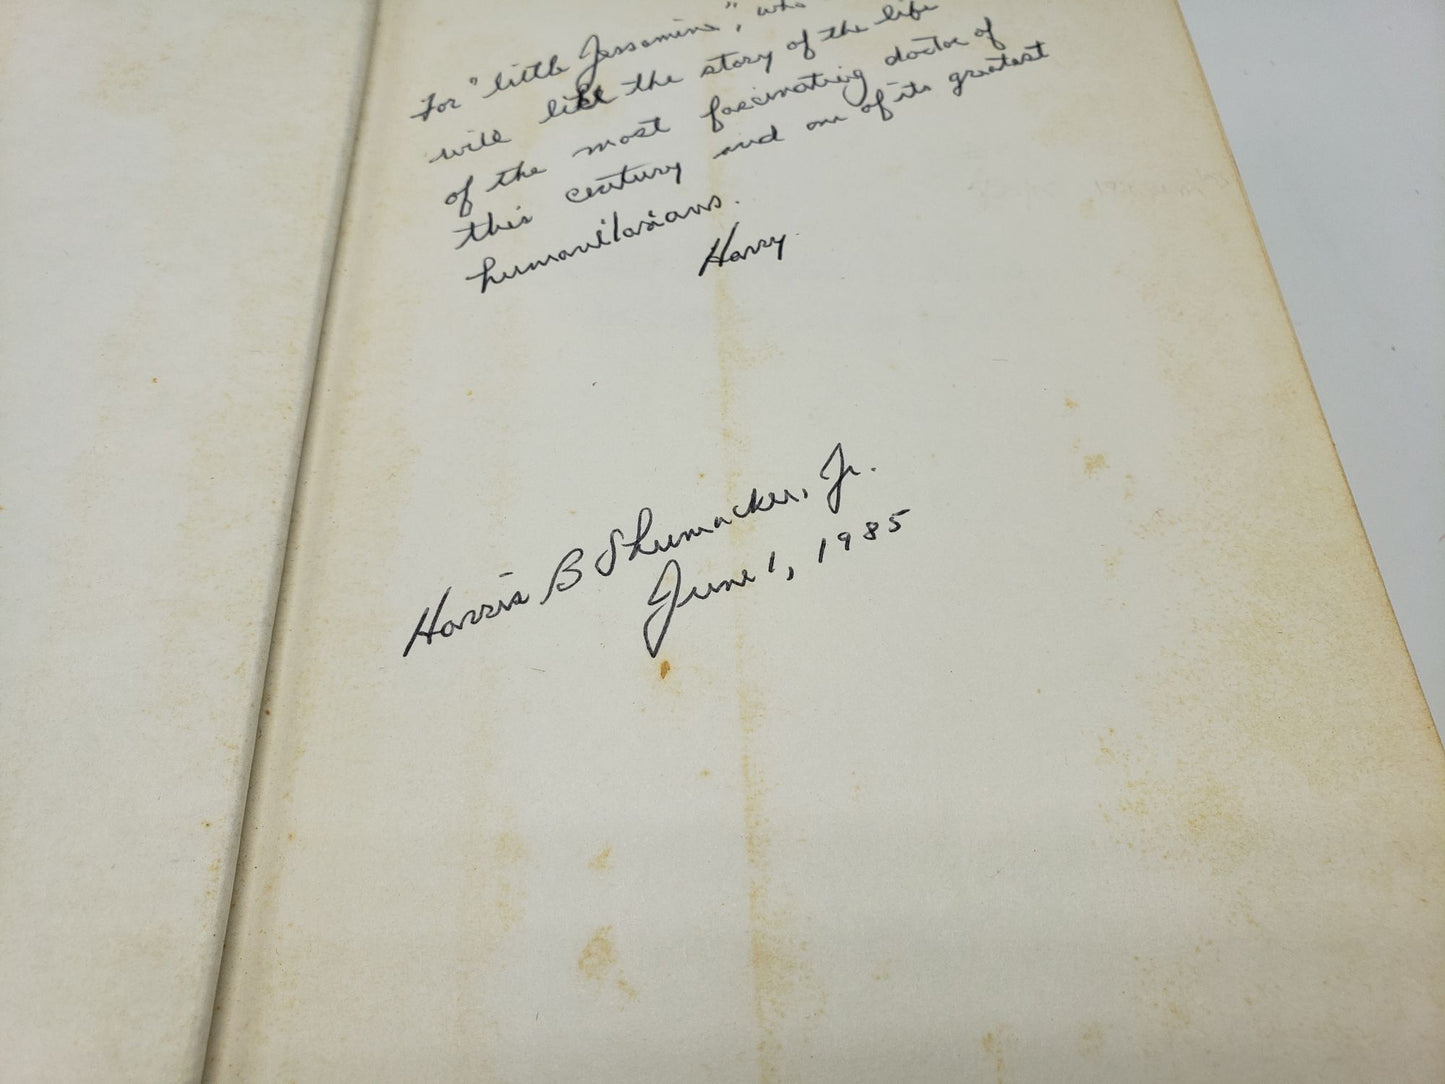 For "little Jessamine", who
will like the story of the life
of the most fascinating doctor of
this century and one of its greatest
humanitarians.
Harry
Harris B Shumacker, Jr.
June 1, 1985